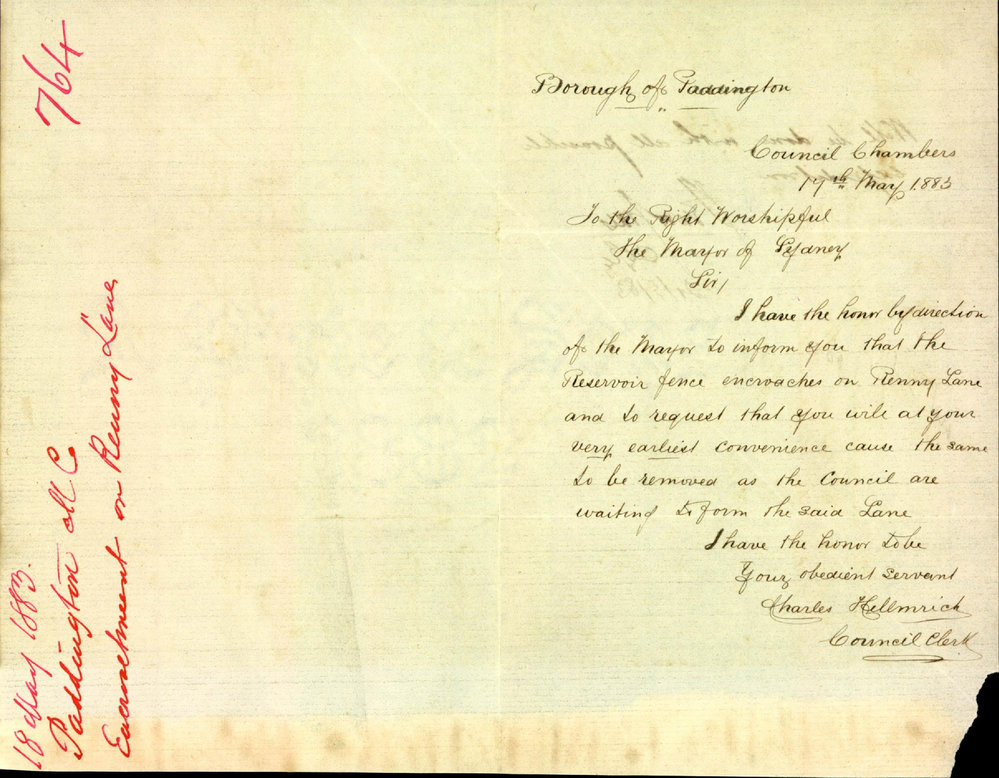 764
18 May 1883.
Paddington M C
Encroachment on Renny Lane
Borough of Paddington
Council Chambers
17th May 1883
To the Right Worshipful
The Mayor of Sydney
Sir,
I have the honor by direction
of the Mayor to inform you that the
Reservoir fence encroaches on Renny Lane
and to request that you will at your
very earliest convenience cause the same
to be removed as the Council are
waiting to form the said Lane
I have the honor to be
Your obedient servant
Charles Hellmrich
Council Clerk